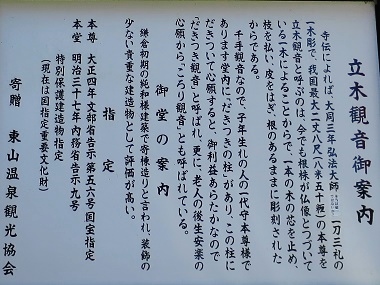 立木観音御案内
寺伝によれば、大同三年弘法大師一刀三礼の
一木彫で、我国最大二丈八尺(八米五十糎)の本尊を
立木観音と呼ぶのは、今でも根株が仏像とつづいて
いる一木によることからで、一本の木の芯を止め、
枝を払い、皮をはぎ、根のあるままに彫刻された
からである。
千手観音なので、子年生れの人の一代守本尊様で
あります堂内に「だきつきの柱」があり、この柱に
だきついて心願すると、御利益あらたかなので
「だきつき観音」と呼ばれ、更に、老人の後生安楽の
心願から、ころり観音とも呼ばれている。
御堂の案内
鎌倉初期の純和様建築で寄棟造りと言われ、装飾の
少ない貴重な建造物として評価が高い。
指定
本尊 大正四年文部省告示第五六号 国宝指定
本堂 明治三十七年内務省告示九号
特別保護建造物指定
(現在は国指定重要文化財)
寄贈 東山温泉観光協会